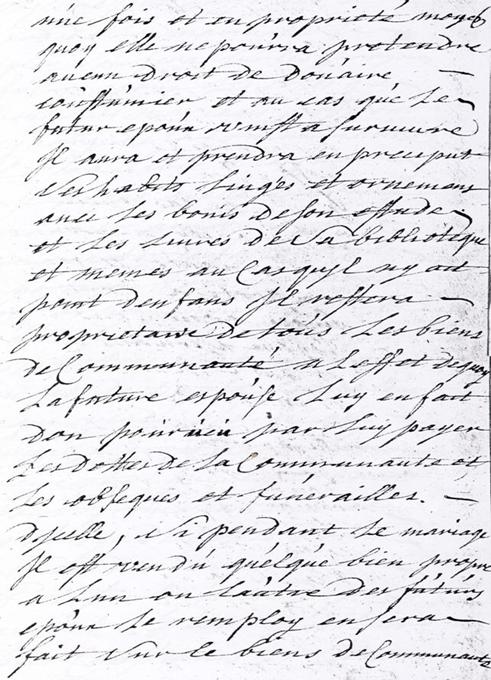 une fois et en proprieté moyen
quoy elle ne pourra pretendre
aucun Droit de Douaire —
couſtumier et au cas que Le
futur epoux vinſt a Survivre
Jl aura et prendra en preciput
Ses habits Linges et ornemens
avec Les bonis de Son eſtude
et Les Livres de Sa biblioteque
et memes au Cas quyl ny ait
point denfans Jl reſtera —
proprietaire de tous Les biens
de Communauté a Leffet de quoy
La future espouſe Luy en fait
Don pourveu par Luy payer
Les Dettes de La Communaute et
Les obſeques et funérailles. —
Djcelle, Si pendant Le mariage
Jl eſt vendu quelque bien propre
a Lun ou Lautre des futurs
epoux Le remploy en Sera
fait Sur Le biens de Communauté